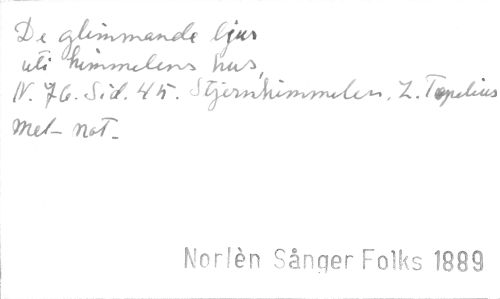 De glimmande ljus
uti himmelens hus,
N. 76. Sid. 45. Stjernhimmelen. Z. Topelius
Met- not-
Norlèn Sånger Folks 1889